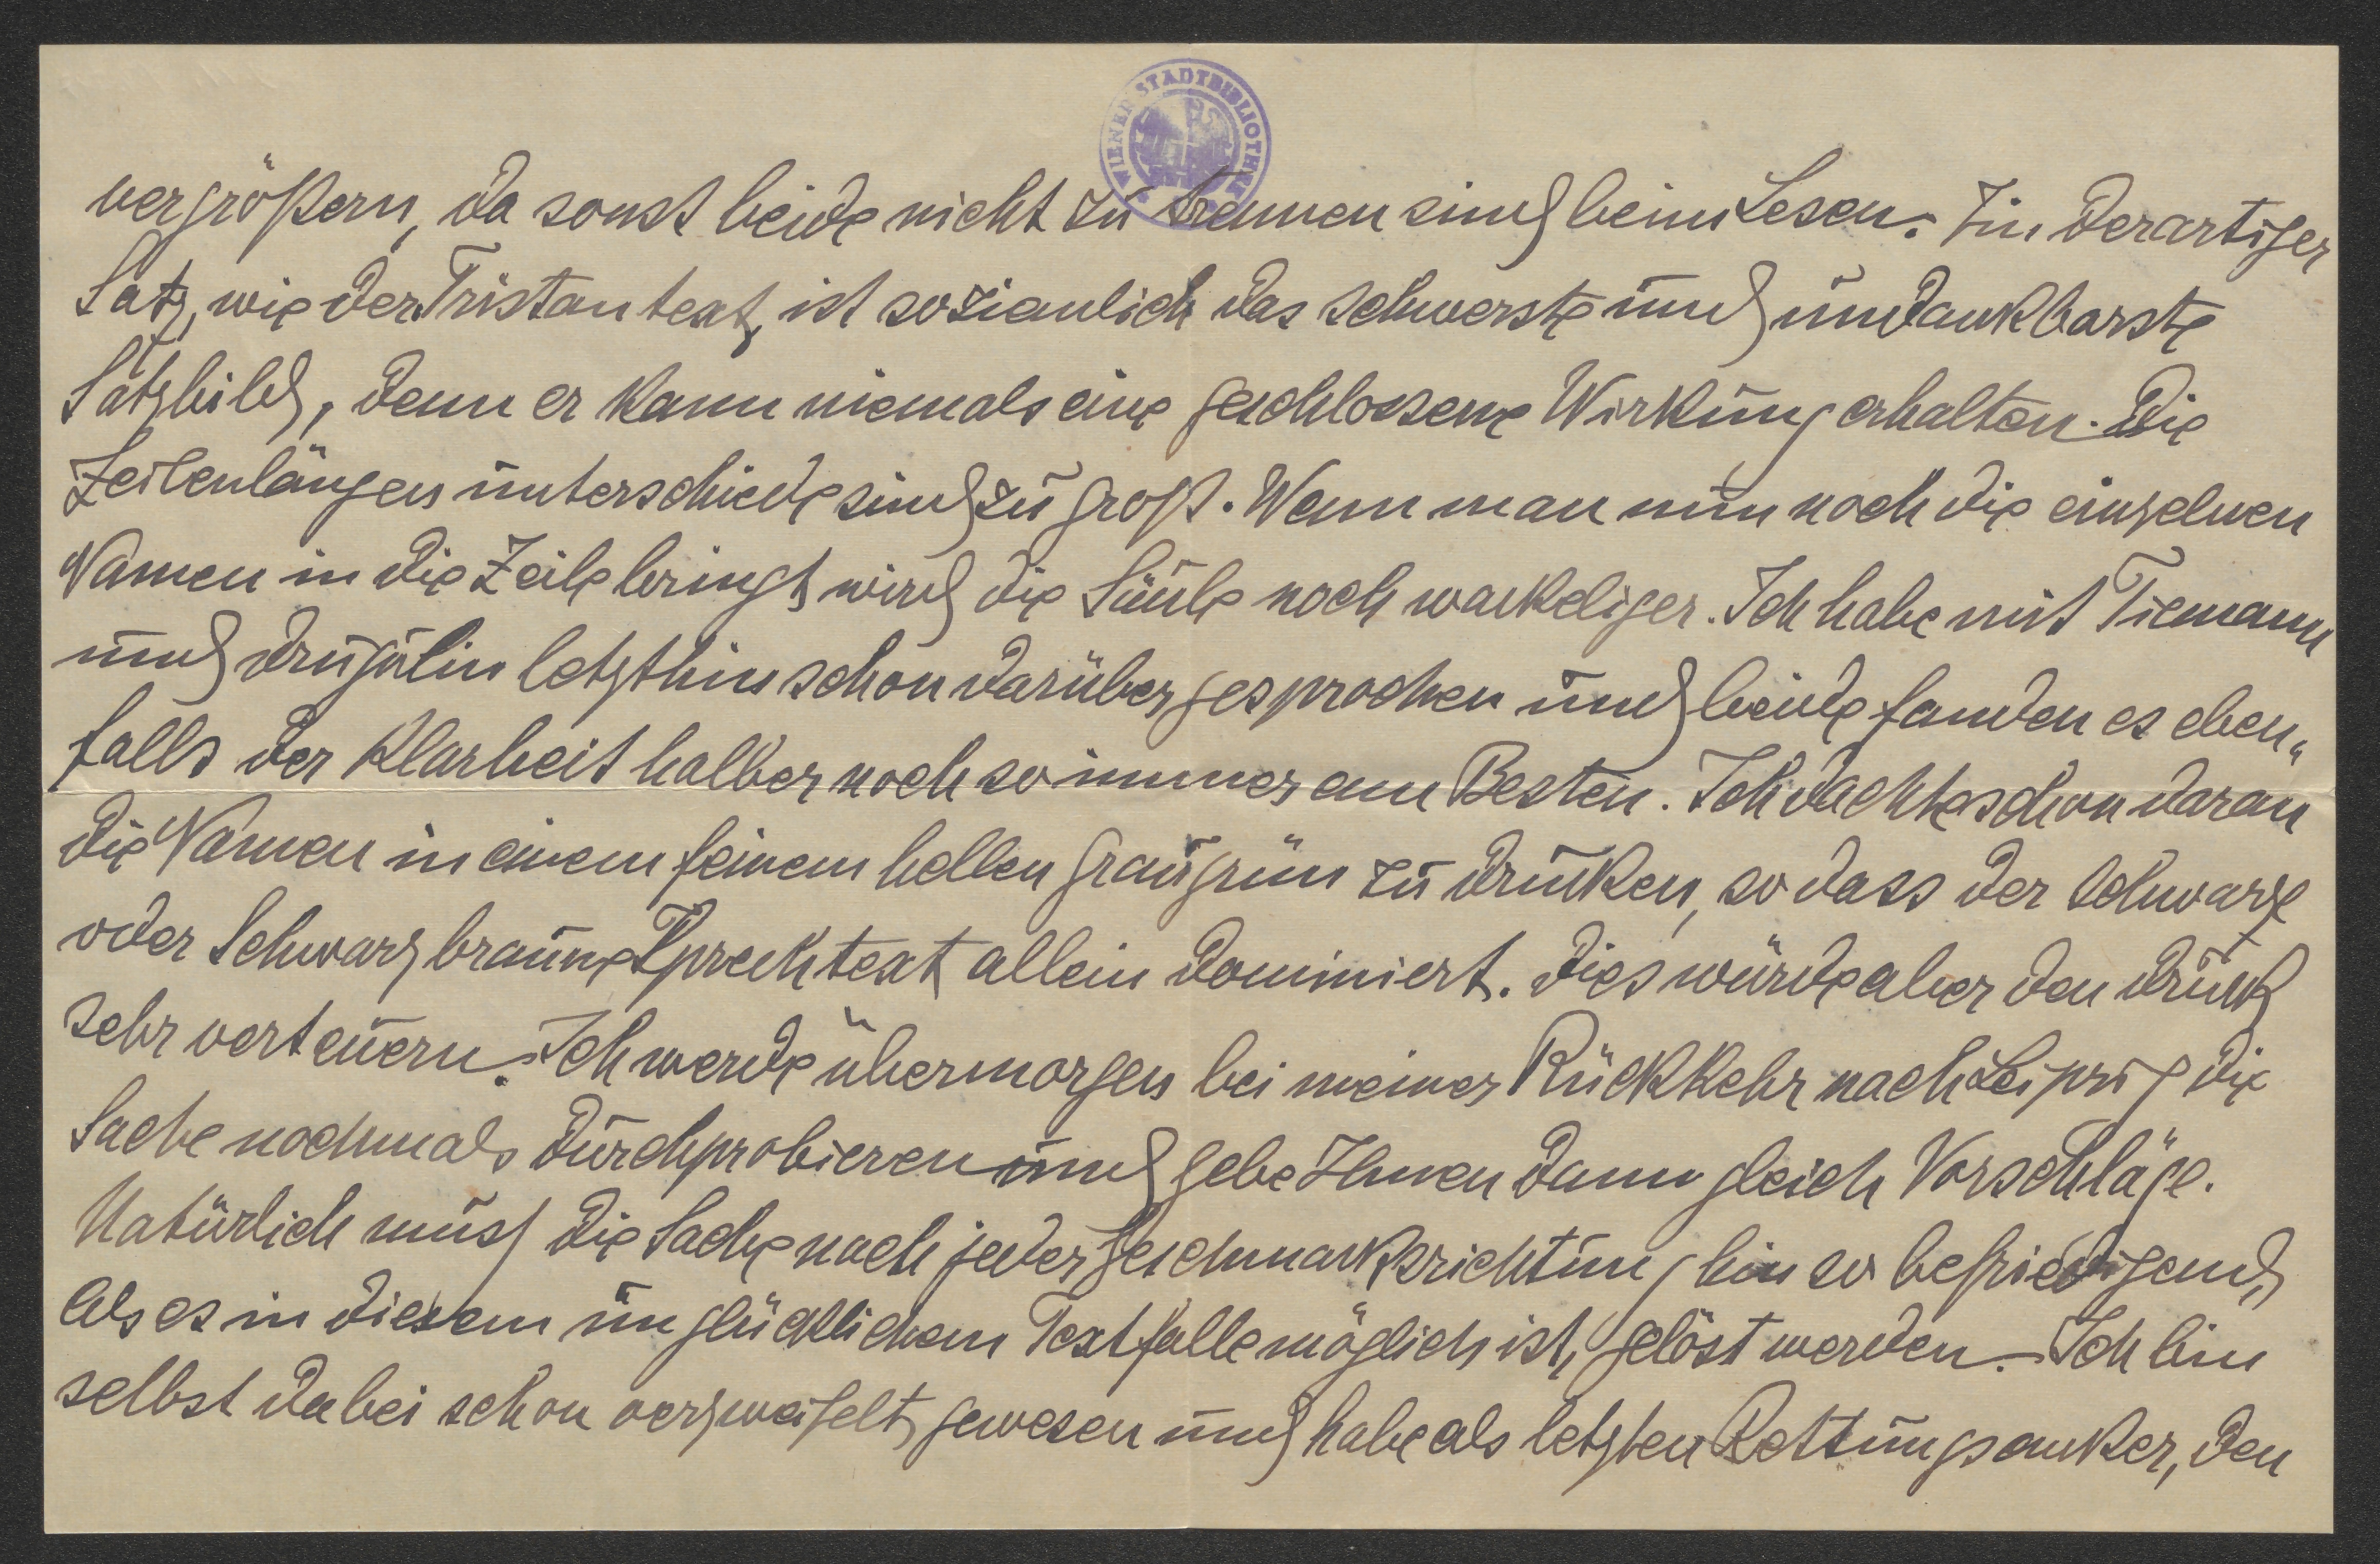 WIENER STADTBIBLIOTHEK
vergrößern, da sonst beide nicht zu trennen sind beim Lesen. Ein derartiger
Satz, wie der Tristantext, ist so ziemlich das schwerste und undankbarste
Satzbild, denn er kann niemals eine geschlossene Wirkung erhalten. Die
Zeilenlängenunterschiede sind zu groß. Wenn man nun noch die einzelnen
Namen in die Zeile bringt wird die Säule noch wackeliger. Ich habe mit Tiemann
und Drugulin letzthin schon darüber gesprochen und beide fanden es eben„
falls der Klarheit halber noch so immer am Besten. Ich dachte schon daran
die Namen in einem feinem hellen graugrün zu drucken, so dass der schwarze
oder Schwarzbraune Sprechtext allein dominiert. Dies würde aber den Druck
sehr verteuern. Ich werde übermorgen bei meiner Rückkehr nach Leipzig die
Sache nochmals durchprobieren und gebe Ihnen dann gleich Vorschläge.
Natürlich muss die Sache nach jeder Geschmacksrichtung hin so befriedigend,
als es in diesem unglücklichem Textfalle möglich ist, gelöst werden. – Ich bin
selbst dabei schon verzweifelt gewesen und habe als letzten Rettungsanker, den